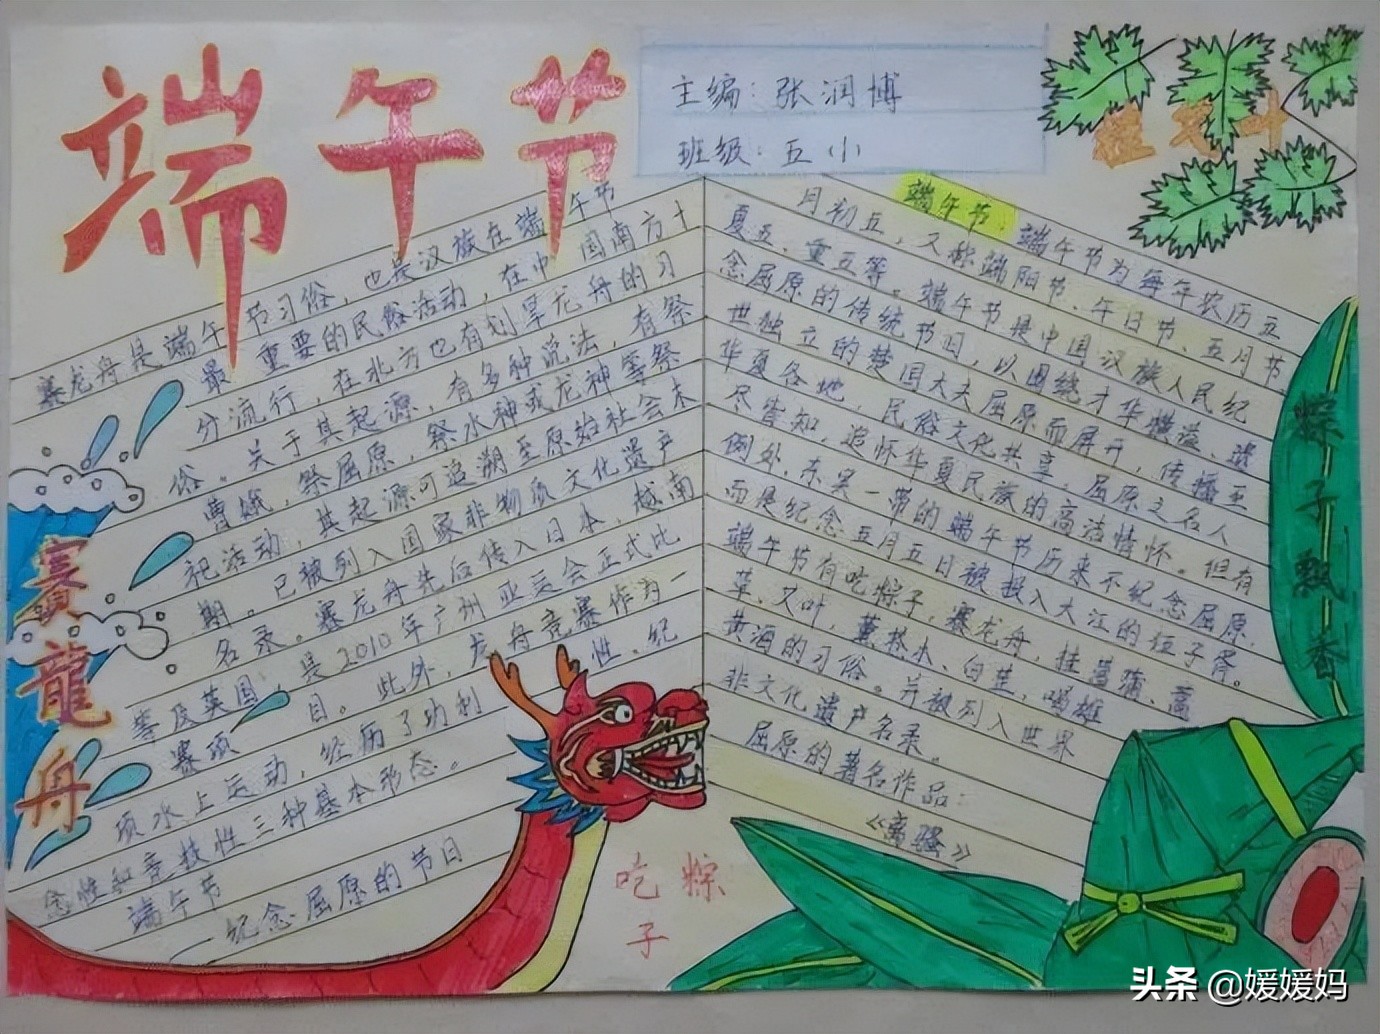 端午节
主编：张润博
班级：五小
挂艾叶
赛龙舟是端午节习俗，也是汉族在端午节
最重要的民俗活动，在中国南方十
分流行，在北方也有划旱龙舟的习
俗。关于其起源，有多种说法，有祭
曹娥，祭屈原，祭水神或龙神等祭
祀活动，其起源可追溯至原始社会末
期。已被列入国家非物质文化遗产
名录。赛龙舟先后传入日本，越南
等及英国，是2010年广州亚运会正式比
赛项目。此外，龙舟竞赛作为一
项水上运动，经历了功利性、纪
念性和竞技性三种基本形态。
端午节
—纪念屈原的节日
端午节，端午节为每年农历五
月初五，又称端阳节、午日节、五月节
夏五、重五等。端午节是中国汉族人民纪
念屈原的传统节日，以围绕才华横溢、遗
世独立的楚国大夫屈原而展开，传播至
华夏各地，民俗文化共享，屈原之名人
尽皆知，追怀华夏民族的高洁情怀。但有
例外，东吴一带的端午节历来不纪念屈原，
而是纪念五月五日被投入大江的伍子胥。
端午节有吃粽子，赛龙舟，挂菖蒲、蒿
草、艾叶，薰苍术、白芷，喝雄
黄酒的习俗。并被列入世界
非文化遗产名录。
屈原的著名作品：
《离骚》
赛龍舟
粽子飘香
吃粽
子
头条 @媛媛妈